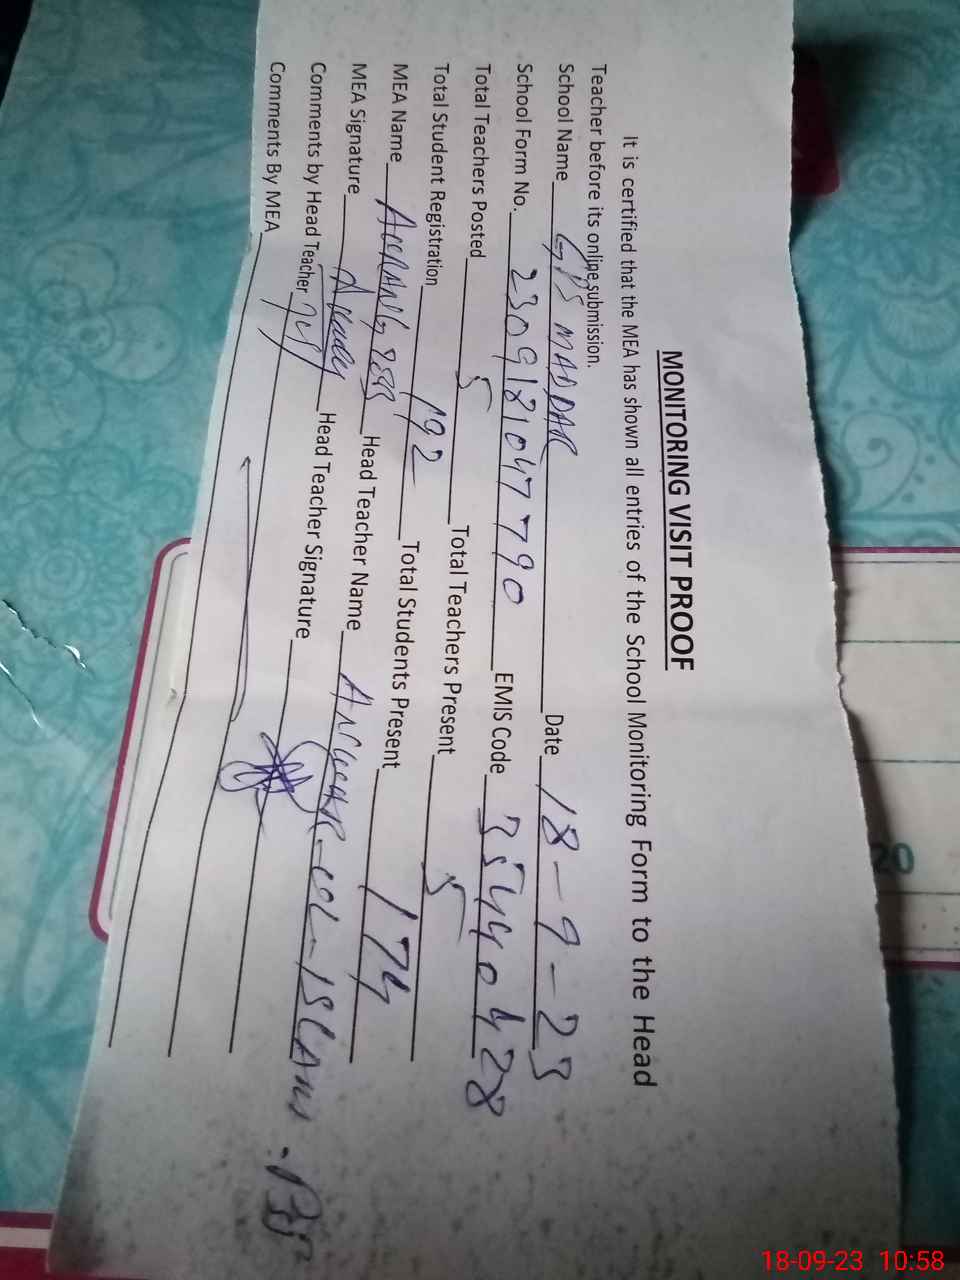 MONITORING VISIT PROOF
It is certified that the MEA has shown all entries of the School Monitoring Form to the Head
Teacher before its online submission.
School Name GPS MADDAR Date 18-9-23
School Form No. 2309181047790 EMIS Code 35440428
Total Teachers Posted 5 Total Teachers Present 5
Total Student Registration 192 Total Students Present 174
MEA Name Head Teacher Name
MEA Signature Head Teacher Signature
Comments by Head Teacher
Comments By MEA
20
18-09-23 10:58